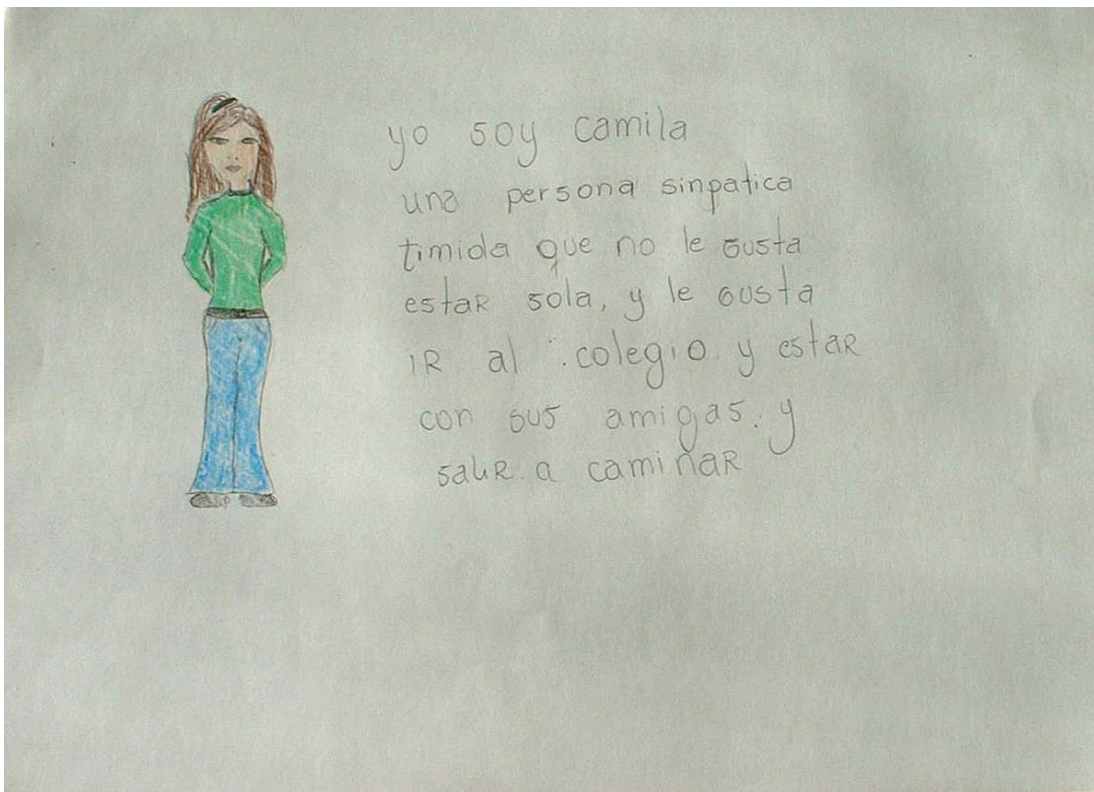 yo soy camila
una persona sinpatica
timida que no le gusta
estaR sola, y le gusta
iR al colegio y estaR
con sus amigas. y
saliR a caminaR